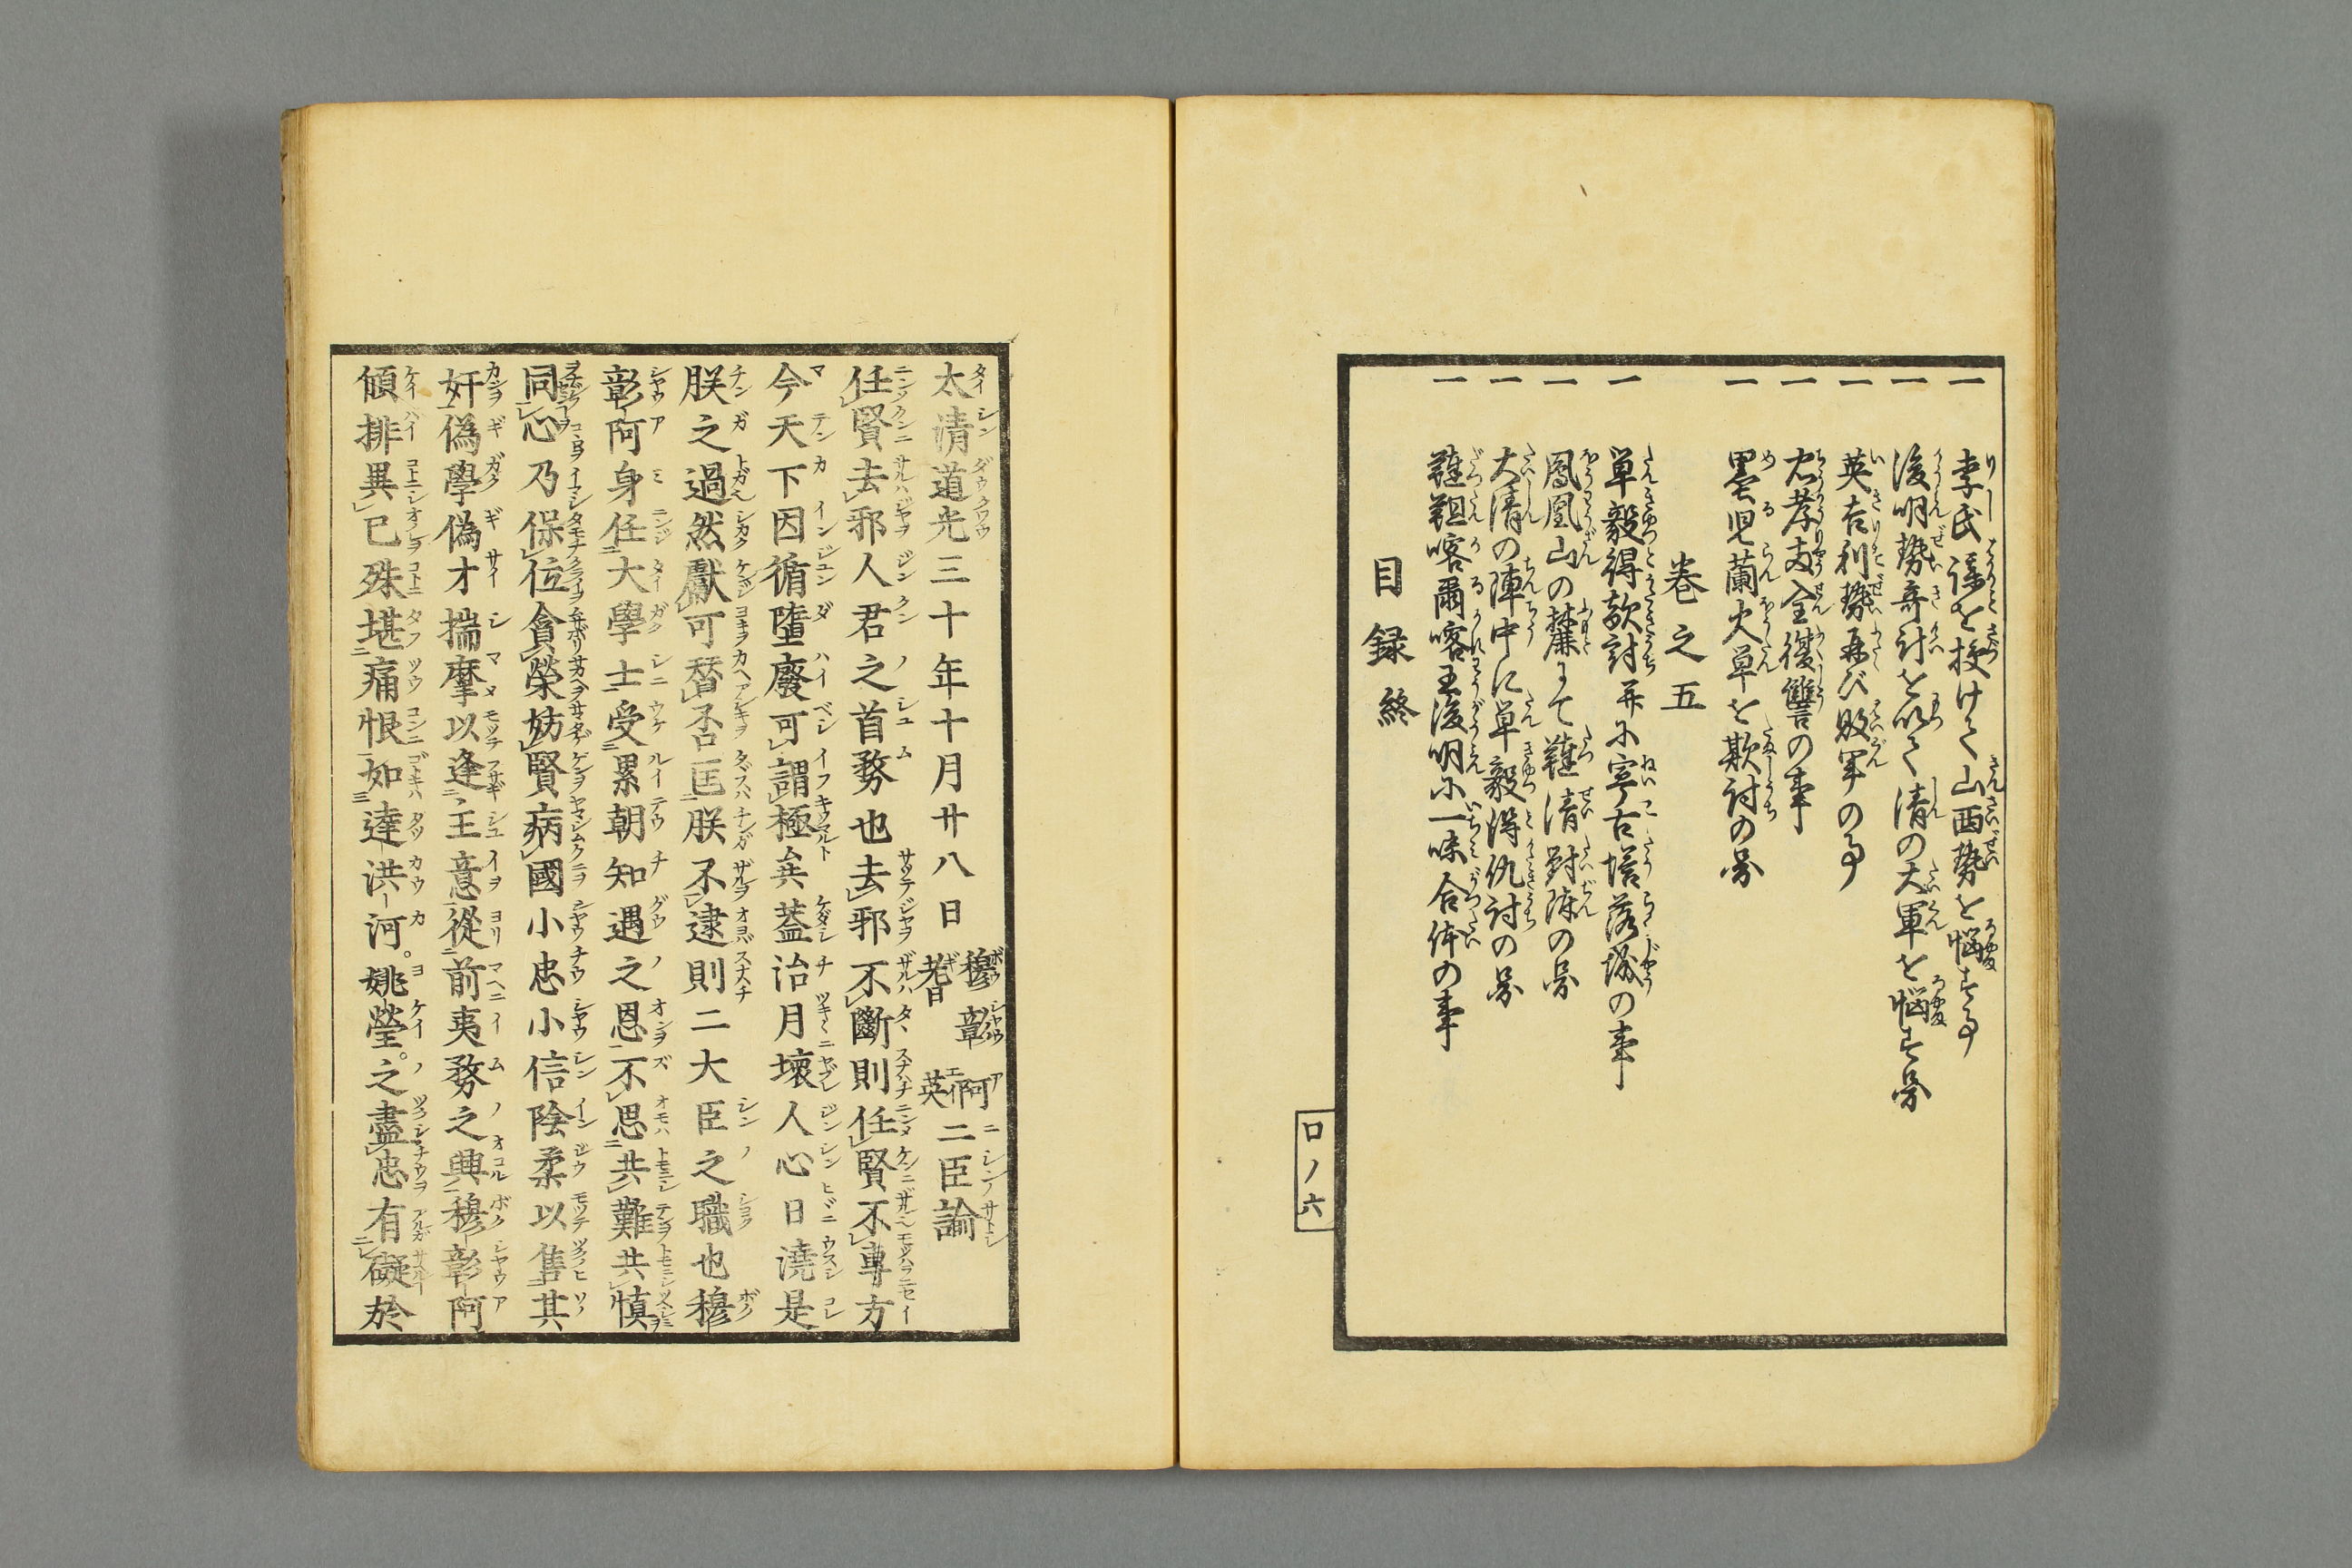 一 李氏謡を授けて山西勢を悩す事
一 後明勢奇計を以て清の大軍を悩す叓
一 英吉利勢再び敗軍の事
一 忠孝両全復讐の事
一 墨児蘭火単を欺討の叓
巻之五
一 単毅得欺討并に寧古塔落城の事
一 鳳凰山の麓にて韃清対陣の叓
一 大清の陣中に単毅得仇討の叓
一 韃靼喀爾喀王後明に一味合体の事
目録終
ロノ六
太清道光三十年十月廿八日穆彰阿耆英二臣論
任賢去邪人君之首務也去邪不斷則任賢不專方
今天下因循墮廢可謂極矣葢治月壞人心日澆是
朕之過然獻可替否匡朕不逮則二大臣之職也穆
彰阿身任大學士受累朝知遇之恩不思共難共慎
同心乃保位貪榮妨賢病國小忠小信陰柔以售其
奸偽學偽才揣摩以逢主意從前夷務之興穆彰阿
傾排異已殊堪痛恨如達洪河。姚瑩。之盡忠有礙於